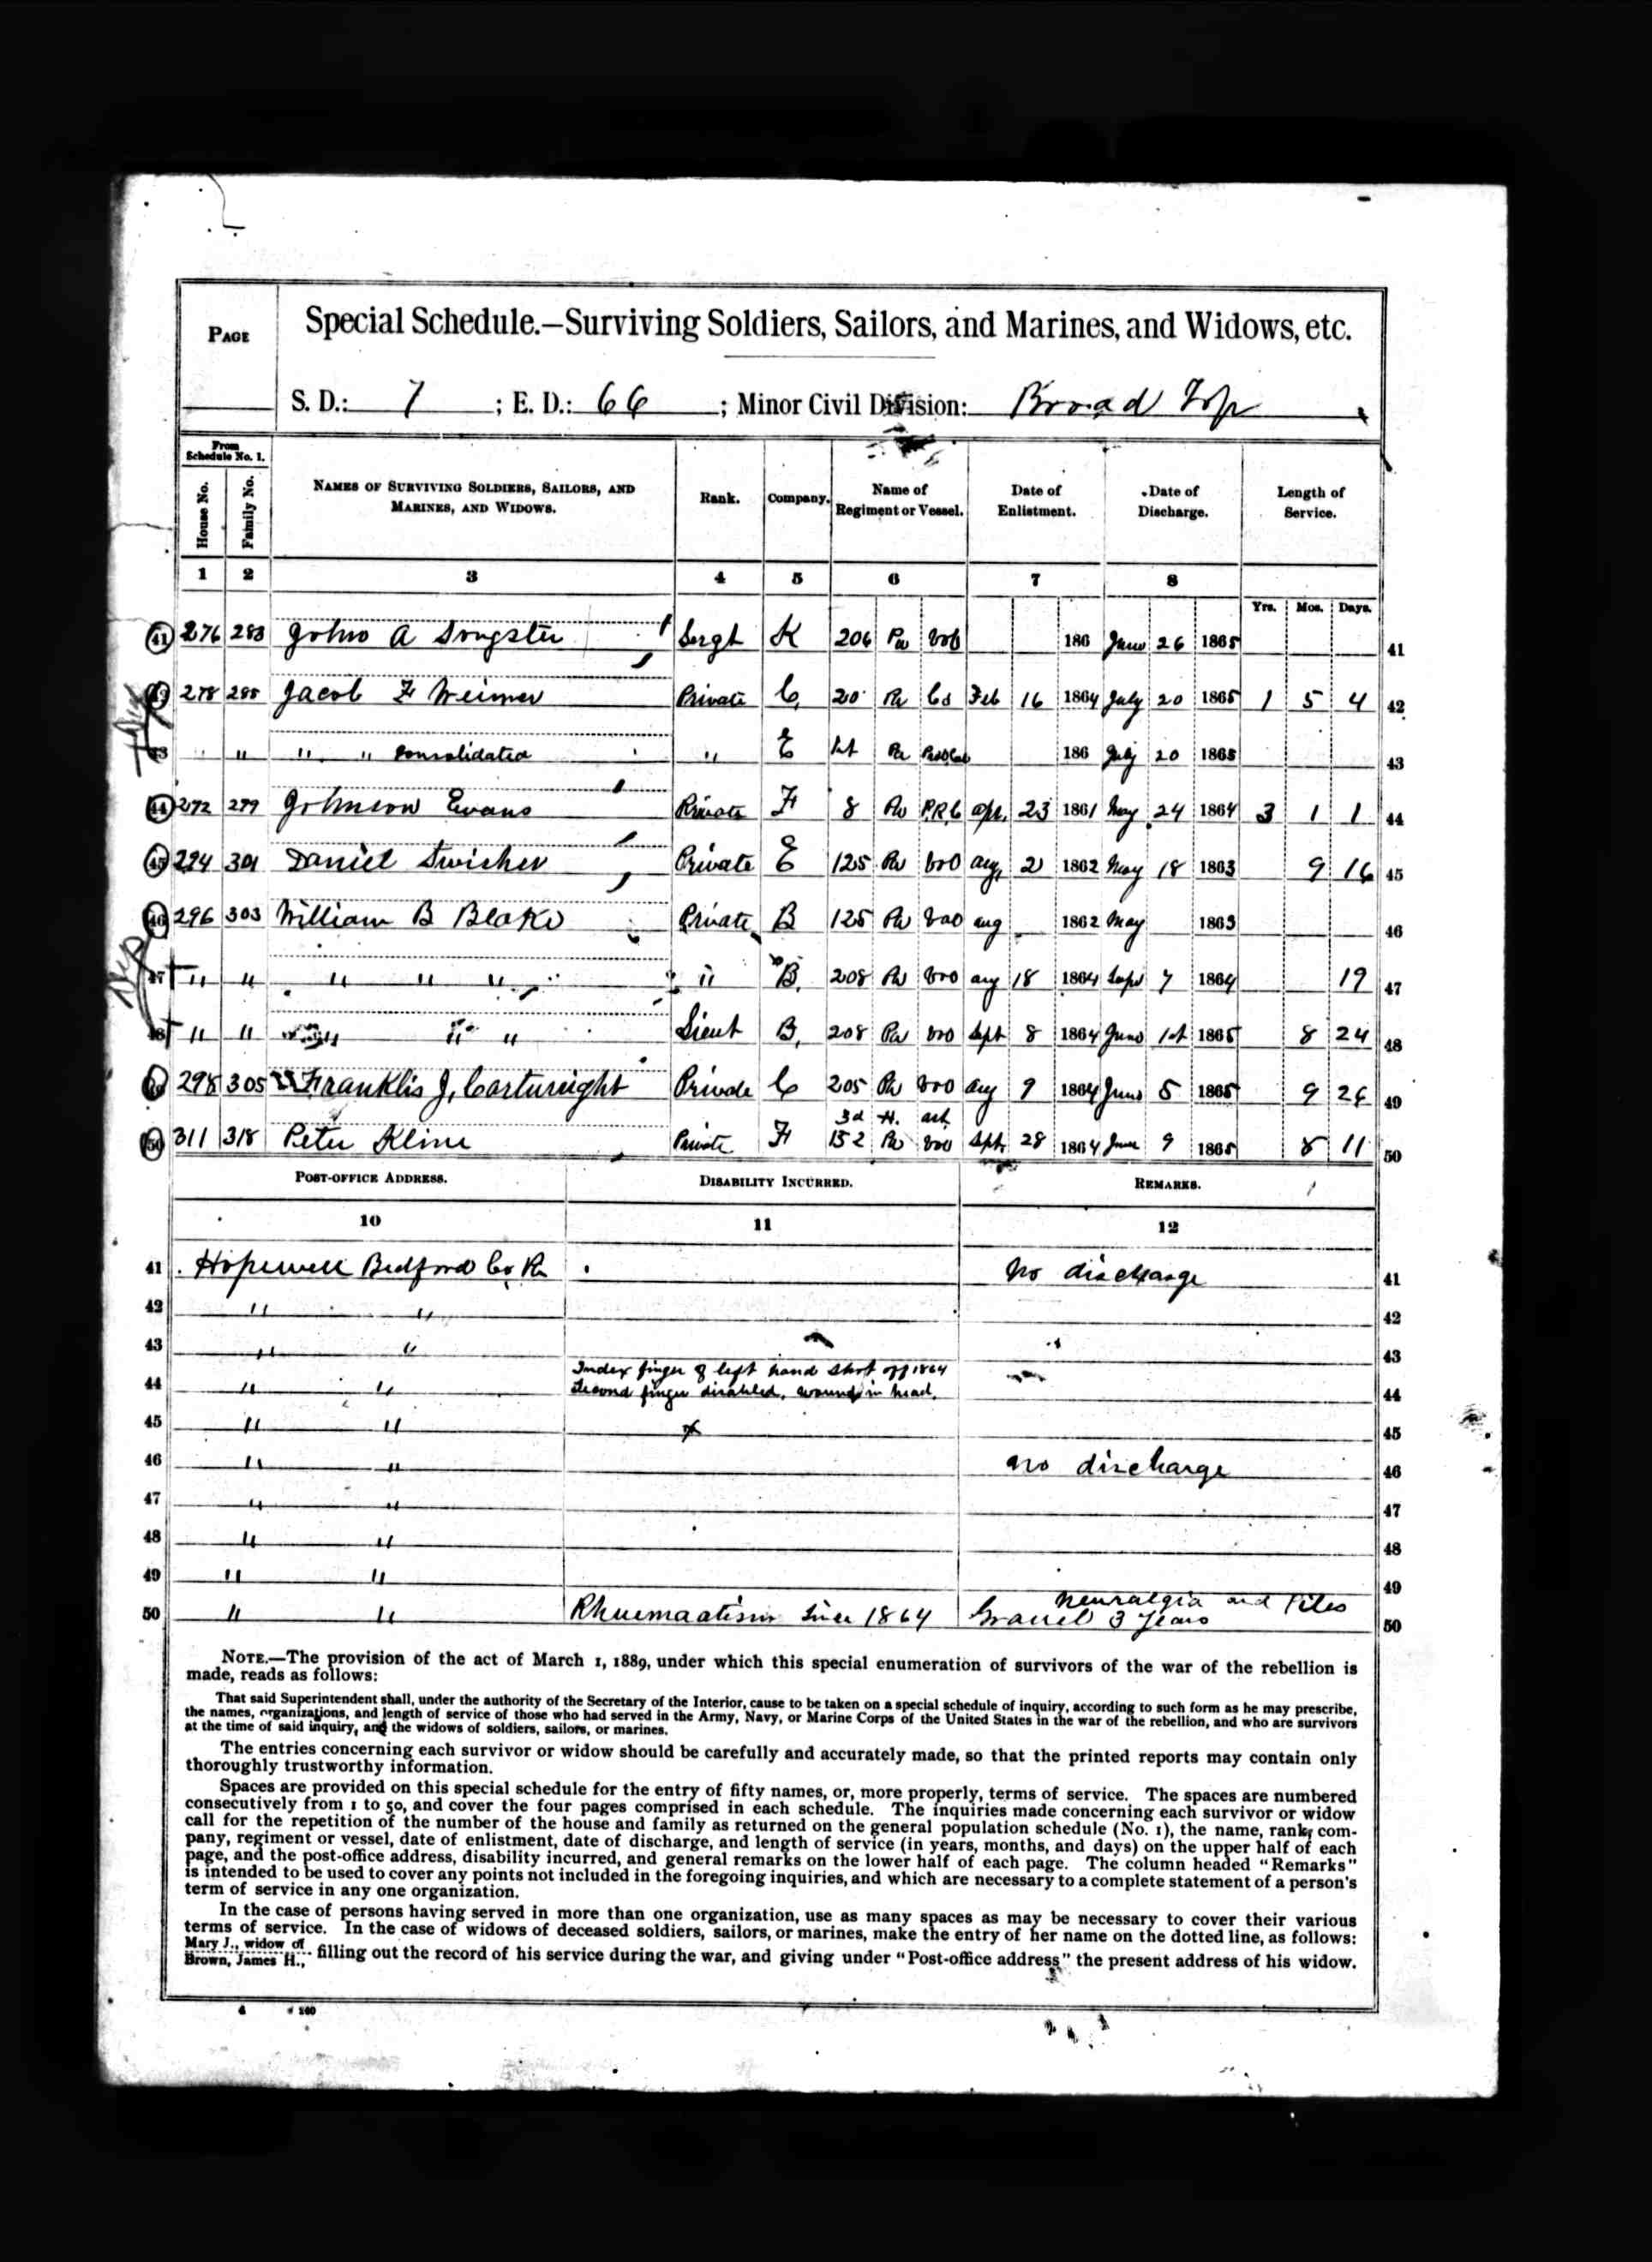 PAGE
Special Schedule.—Surviving Soldiers, Sailors, and Marines, and Widows, etc.
S. D.: 7 ; E. D.: 66 ; Minor Civil Division: Broad Top
From Schedule No. 1.
House No. Family No. NAMES OF SURVIVING SOLDIERS, SAILORS, AND MARINES, AND WIDOWS. Rank. Company. Name of Regiment or Vessel. Date of Enlistment. Date of Discharge. Length of Service.
1 2 3 4 5 6 7 8
Yrs. Mos. Days.
41 276 283 John A Sergt K 206 Pa Vol 186 June 26 1865 41
278 285 Jacob F Weimer Private C, 20 Pa Feb 16 1864 July 20 1865 1 5 4 42
43 " " " " Consolidated " E 1st Pa 186 July 20 1865 43
44 272 279 Johnson Evans Private F 8 Pa P.R.C Apr. 23 1861 May 24 1864 3 1 1 44
45 294 301 Daniel Swisher Private E 125 Pa Vol Aug, 2 1862 May 18 1863 9 16 45
46 296 303 William B Blake Private B 125 Pa Vol Aug 1862 May 1863 46
47 " " " " " " B, 208 Pa Vol Aug 18 1864 Sept 7 1864 19 47
48 " " " " Lieut B, 208 Pa Vol Sept 8 1864 June 1st 1865 8 24 48
298 305 Franklis J, Cartwright Private C 205 Pa Vol Aug 9 1864 June 5 1865 9 26 49
3d H. art
50 311 318 Peter Kline Private F 152 Pa Vol Sept 28 1864 June 9 1865 8 11 50
POST-OFFICE ADDRESS. DISABILITY INCURRED. REMARKS.
10 11 12
41 Hopewell Bedford Co, Pa no discharge 41
42 " " 42
43 " " 43
Index finger of left hand shot off 1864
44 " " Second finger disabled, wound in head, 44
45 " " x 45
46 " " no discharge 46
47 " " 47
48 " " 48
49 " " 49
neuralgia and Piles
50 " " Rhuemaatism since 1864 Gravel 3 years 50
NOTE.—The provision of the act of March 1, 1889, under which this special enumeration of survivors of the war of the rebellion is
made, reads as follows:
That said Superintendent shall, under the authority of the Secretary of the Interior, cause to be taken on a special schedule of inquiry, according to such form as he may prescribe,
the names, organizations, and length of service of those who had served in the Army, Navy, or Marine Corps of the United States in the war of the rebellion, and who are survivors
at the time of said inquiry, and the widows of soldiers, sailors, or marines.
The entries concerning each survivor or widow should be carefully and accurately made, so that the printed reports may contain only
thoroughly trustworthy information.
Spaces are provided on this special schedule for the entry of fifty names, or, more properly, terms of service. The spaces are numbered
consecutively from 1 to 50, and cover the four pages comprised in each schedule. The inquiries made concerning each survivor or widow
call for the repetition of the number of the house and family as returned on the general population schedule (No. 1), the name, rank, com-
pany, regiment or vessel, date of enlistment, date of discharge, and length of service (in years, months, and days) on the upper half of each
page, and the post-office address, disability incurred, and general remarks on the lower half of each page. The column headed "Remarks"
is intended to be used to cover any points not included in the foregoing inquiries, and which are necessary to a complete statement of a person's
term of service in any one organization.
In the case of persons having served in more than one organization, use as many spaces as may be necessary to cover their various
terms of service. In the case of widows of deceased soldiers, sailors, or marines, make the entry of her name on the dotted line, as follows:
Mary J., widow of
Brown, James H., filling out the record of his service during the war, and giving under "Post-office address" the present address of his widow.